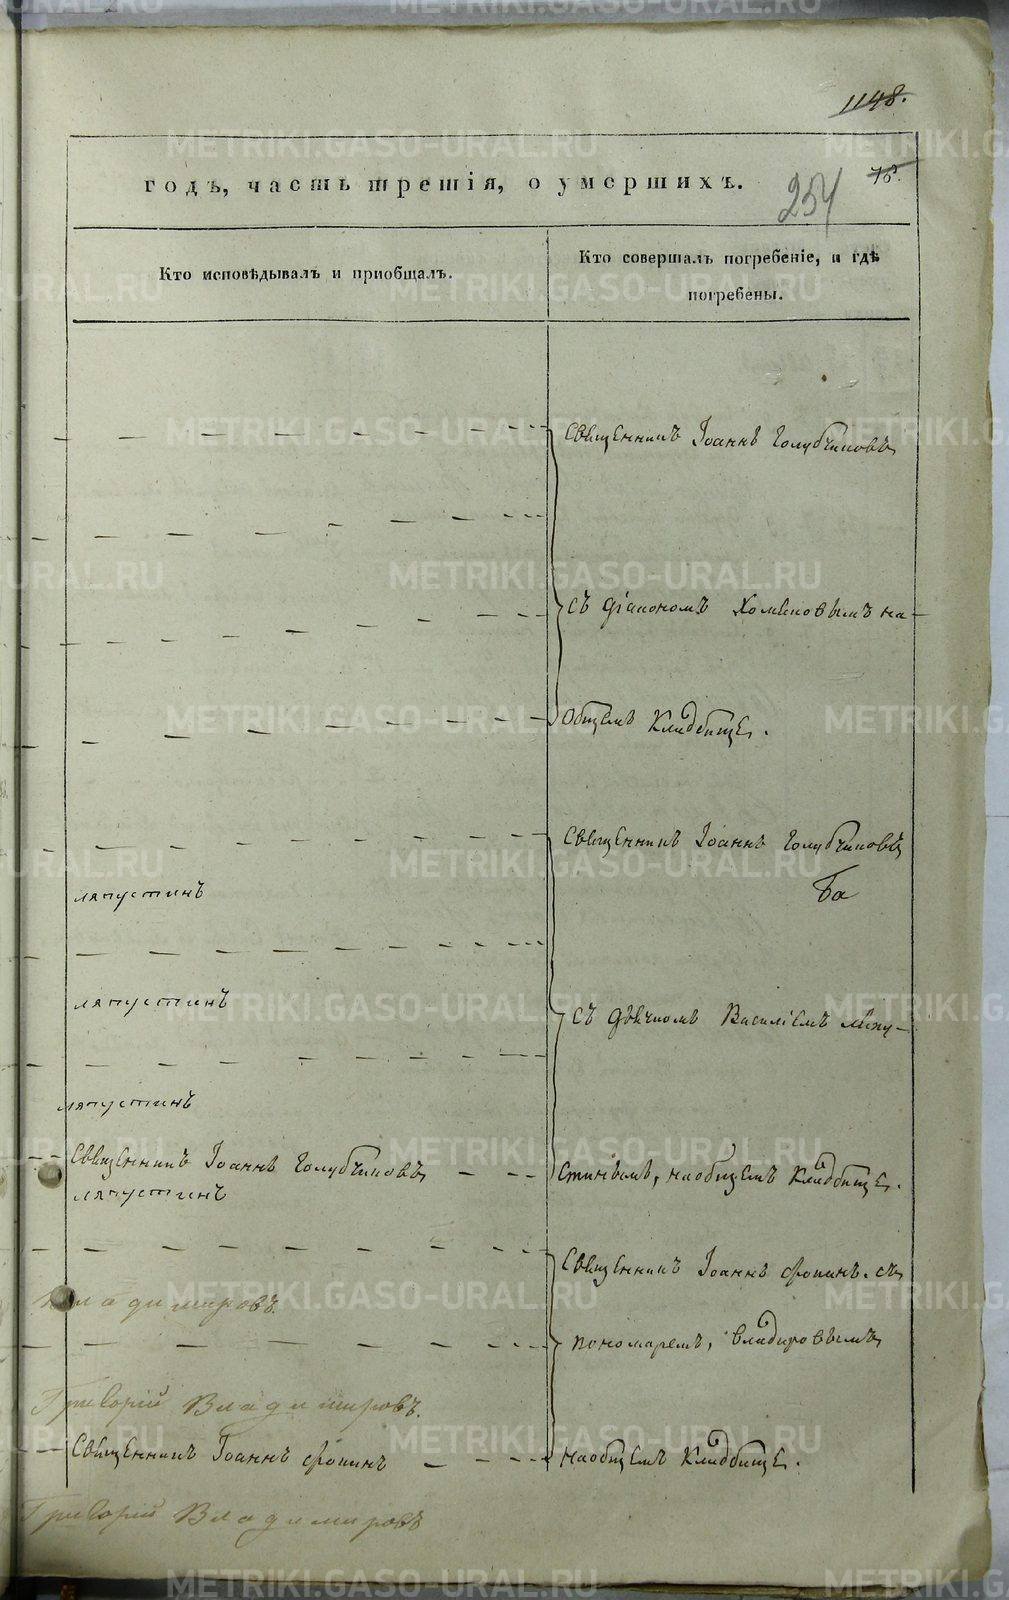 1148.
годъ, часть третія, о умершихъ.
254
78.
Кто исповѣдывалъ и пріобщалъ.
Кто совершалъ погребеніе, и гдѣ
погребены.
Священникъ Іоаннъ Голубчиковъ
съ діакономъ Хомяковымъ на
общемъ кладбищѣ.
Священникъ Іоаннъ Голубчиковъ
ляпустинъ
ляпустинъ
съ дьячкомъ Василіемъ Ляпу-
ляпустинъ
Священникъ Іоаннъ Голубчиковъ
стинымъ, на общемъ кладбищѣ.
ляпустинъ
Священникъ Іоаннъ Ѳокинъ съ
Владимировъ
пономаремъ, Владировымъ
Григорій Владимировъ.
Священникъ Іоаннъ Ѳокинъ
на общемъ кладбищѣ.
Григорій Владимировъ
METRIKI.GASO-URAL.RU